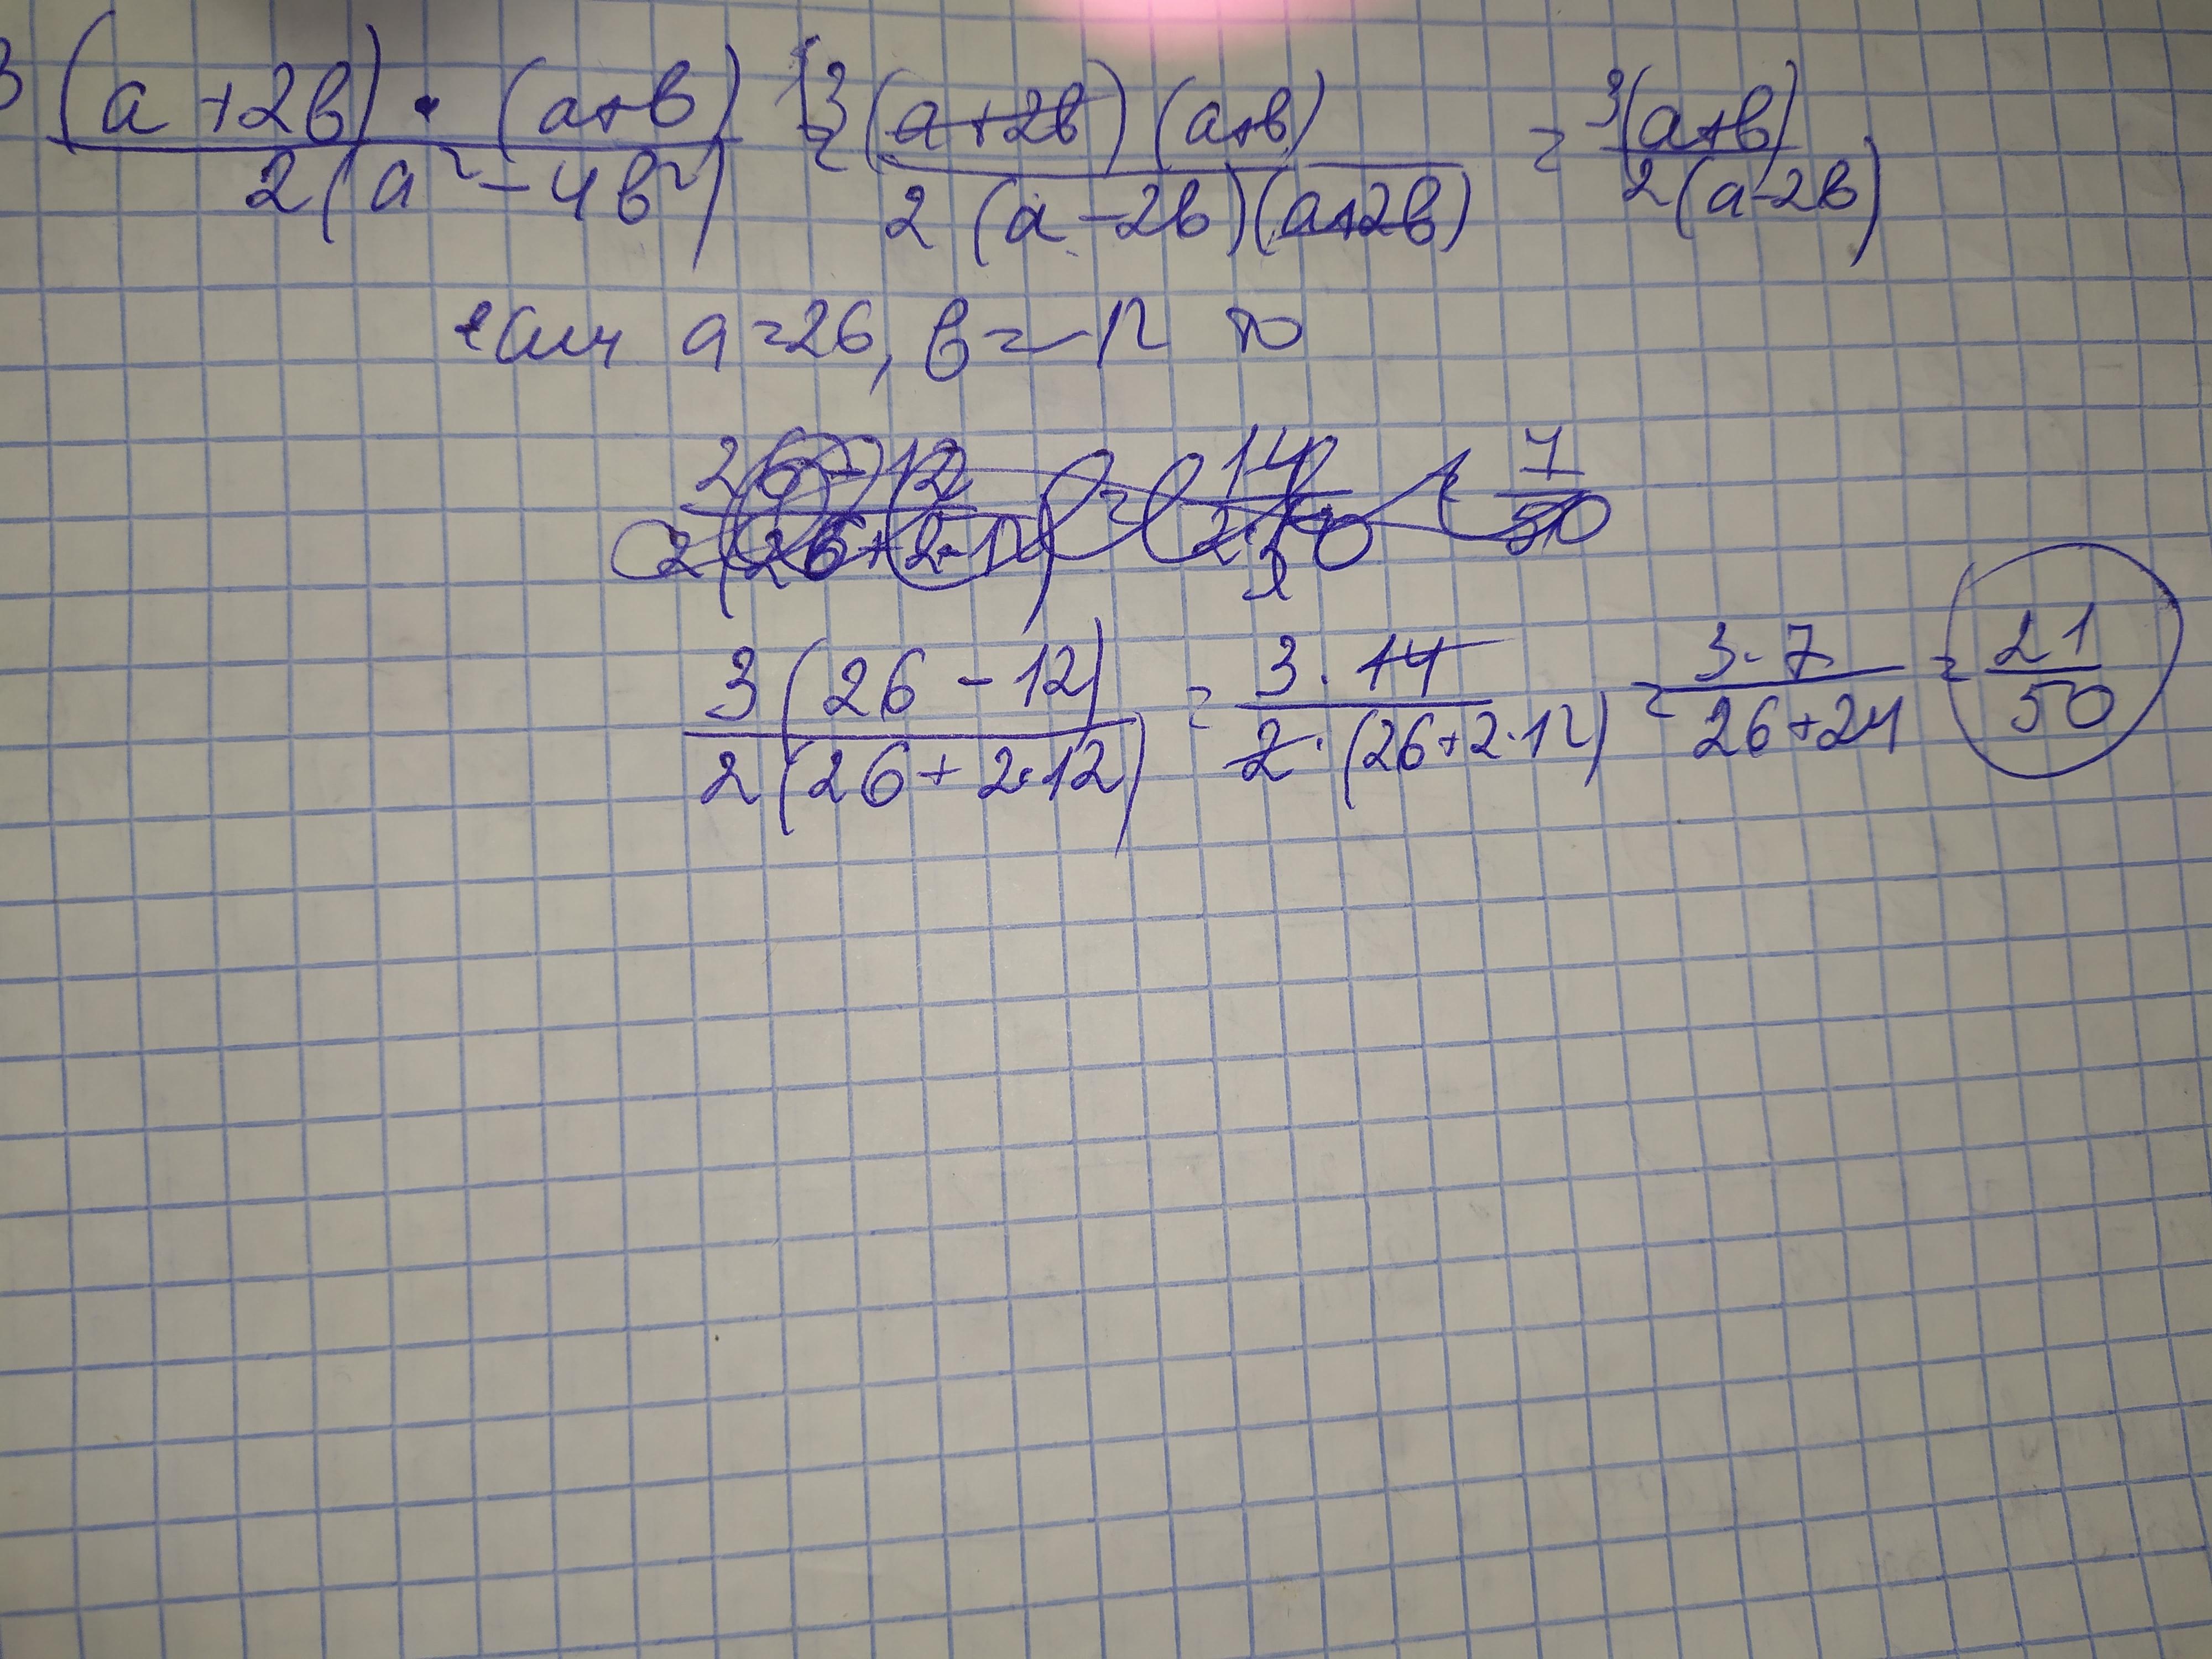 3(a+2b)·(a+b) / 2(a²-4b²) = 3(a+2b)(a+b) / 2(a-2b)(a+2b) = 3(a+b) / 2(a-2b)
если a=26, b=-12 то
26-12 / 2(26+2·12) = 14 / 2·50 = 7 / 50
3(26-12) / 2(26+2·12) = 3·14 / 2·(26+2·12) = 3·7 / 26+24 = 21 / 50